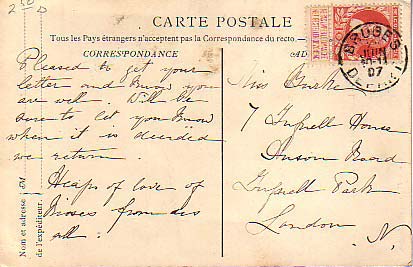 2 50 D
CARTE POSTALE
Tous les Pays étrangers n'acceptent pas la Correspondance du recto
CORRESPONDANCE
AD
BRUGES
JUIN
10-11
07
DEPART
Pleased to get your
letter and know you
are well. Will be
sure to let you know
when it is decided
we return.
Heaps of love &
kisses from us
all.
Miss Burke
7 Tufnell House
Anson Road
Tufnell Park
London
N.
Nom et adresse M
de l'expéditeur.